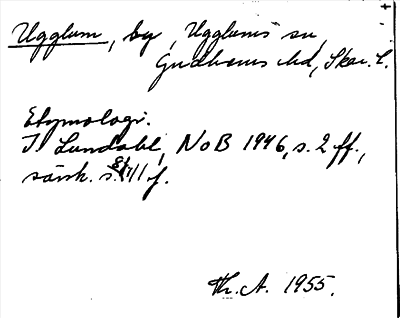 Ugglum, by, Ugglums sn,
Gudhems hd, Skar. l.
Etymologi.
I. Lundahl, NoB 1946, s. 2 ff.,
särsk. s. 11 f.
Th. A. 1955.